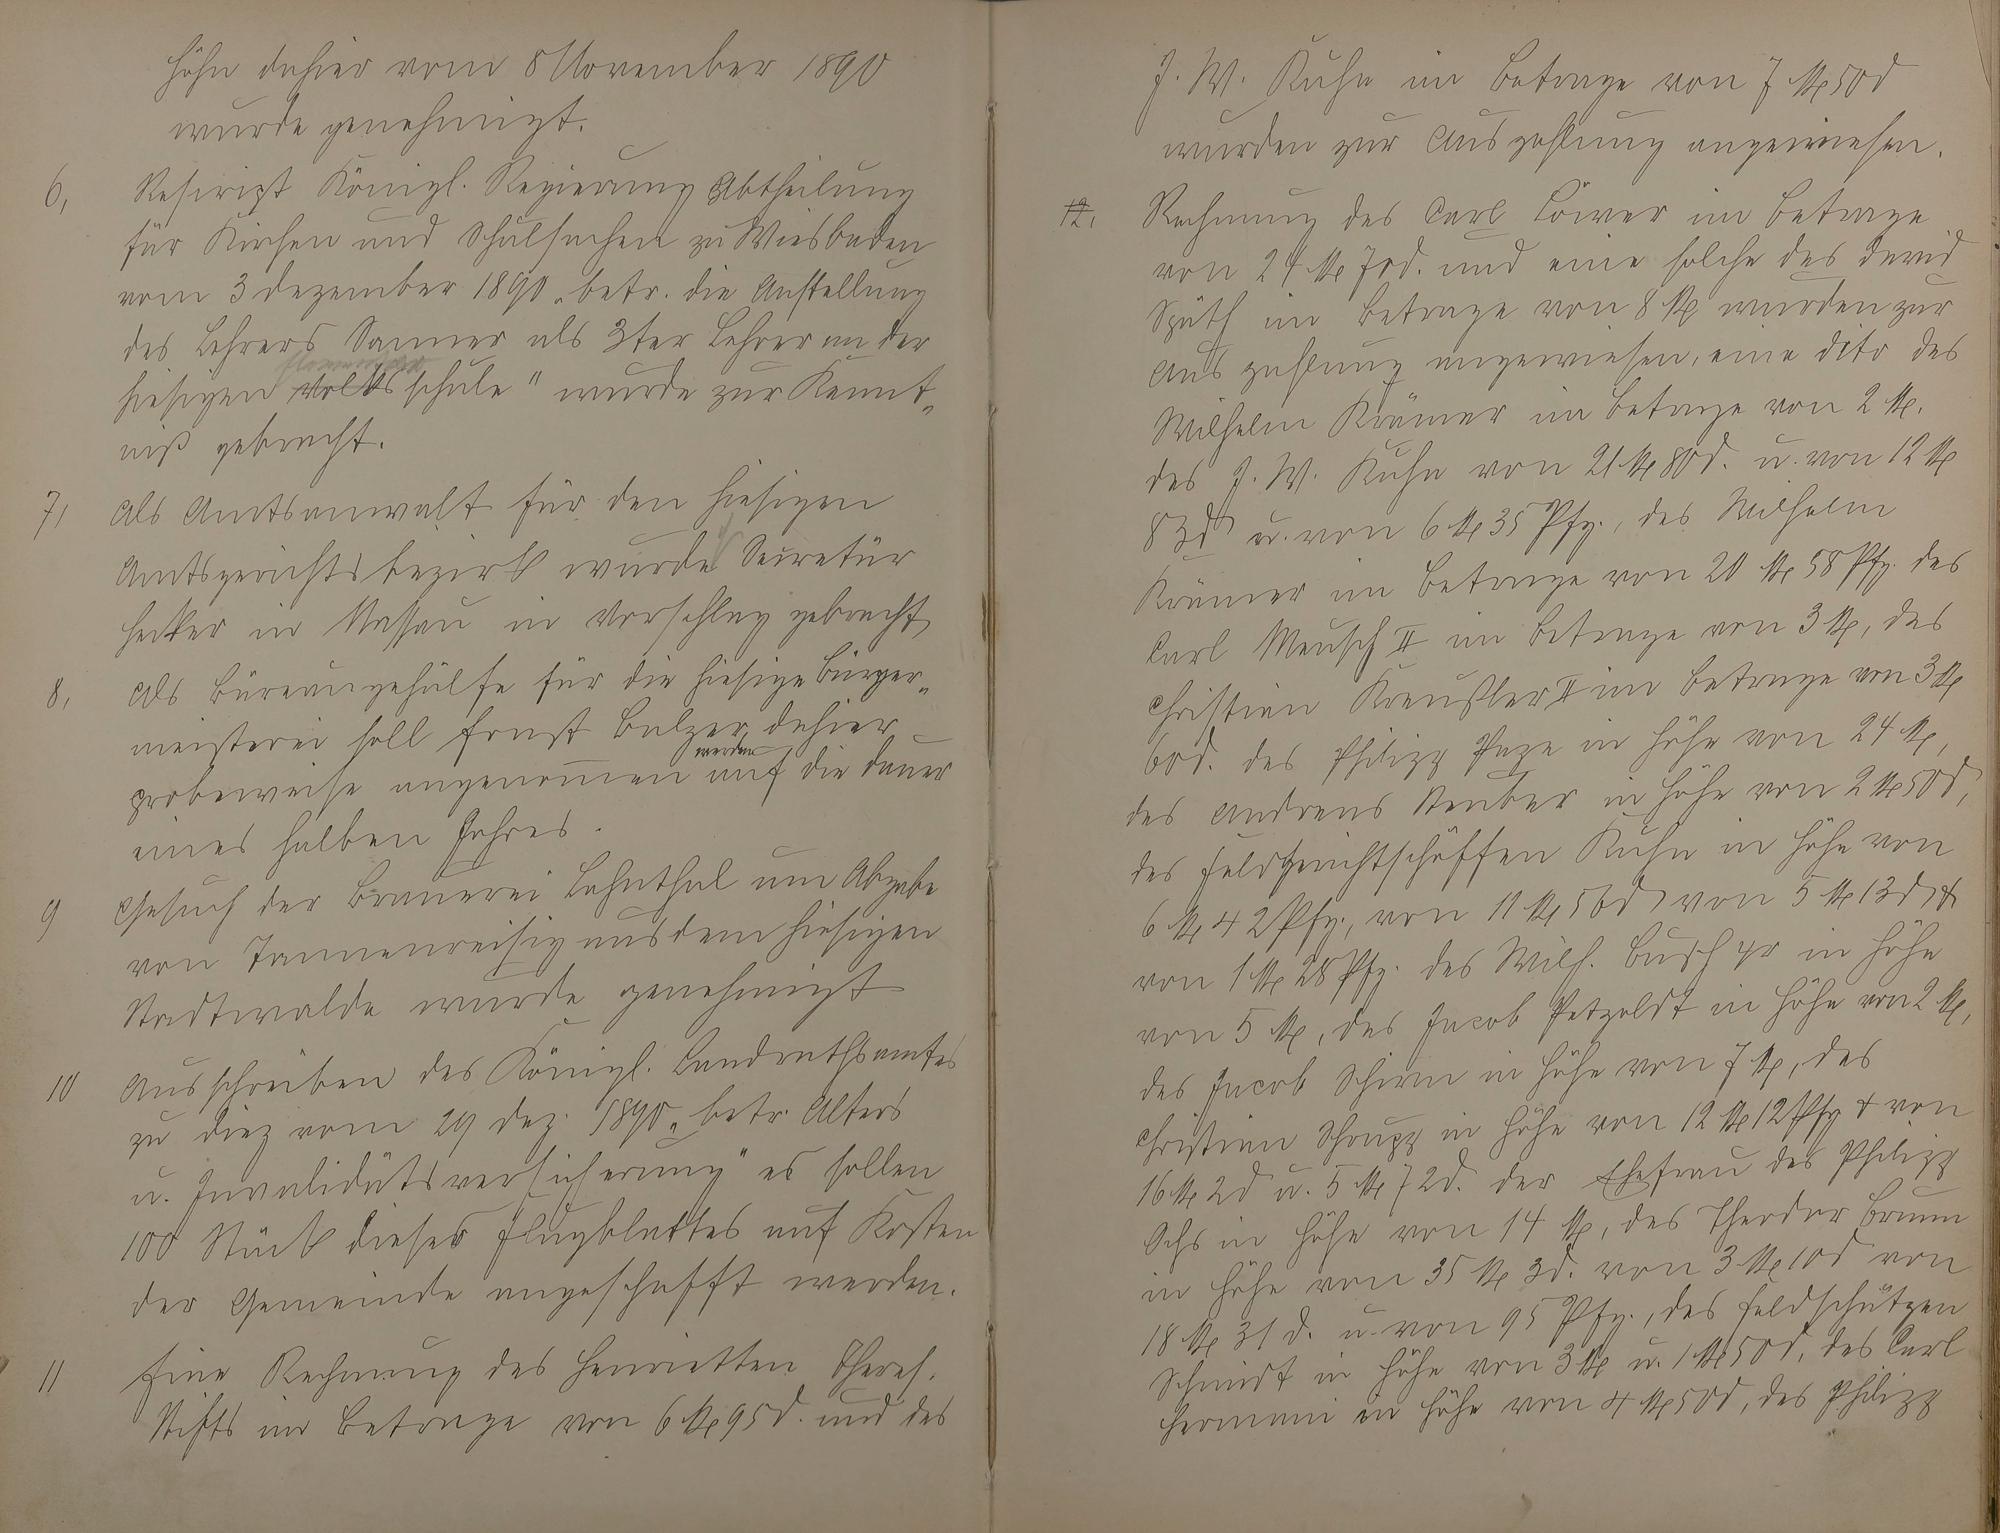 Höhn dahier vom 8 November 1890
wurde genehmigt.
6, Rescript Königl. Regierung Abtheilung
für Kirchen und Schulsachen zu Wiesbaden
vom 3 Dezember 1890 „betr. die Anstellung
des Lehrers Sanner als 3ter Lehrer an der
hiesigen Volksschule" wurde zur Kennt„
niß gebracht.
7, Als Amtsanwalt für den hiesigen
Amtsgerichtsbezirk wurde Secretär
Hecker in Nassau in Vorschlag gebracht
8, Als Büreaugehülfe für die hiesige Bürger„
meisterei soll Ernst Balzer dahier
probeweise angenommen werden auf die Dauer
eines halben Jahres.
9 Gesuch der Brauerei Lahnthal um Abgabe
von Tannenreisig aus dem hiesigen
Stadtwalde wurde genehmigt
10 Ausschreiben des Königl. Landrathsamtes
zu Diez vom 29 Dez. 1890 „betr. Alters
u. Invaliditätsversicherung" es sollen
100 Stück dieses Flugblattes auf Kosten
der Gemeinde angeschafft werden.
11 Eine Rechnung des Henrietten Theres.
Stifts im Betrage von 6 M 95 d. und des
J. W. Kuhn im Betrage von 7 M 50 d
wurden zur Auszahlung angewiesen.
12. Rechnung des Carl Löwer im Betrage
von 24 M 70 d. und eine solche des David
Späth im Betrage von 8 M wurden zur
Auszahlung angewiesen, eine dito des
Wilhelm Krämer im Betrage von 2 M.
des J. W. Kuhn von 21 M 80 d. u. von 12 M
83 d u. von 6 M 35 Pfg., des Wilhelm
Krämer im Betrage von 20 M 58 Pfg. des
Carl Meusch II im Betrage von 3 M, des
Christian Kreußler II im Betrage von 3 M
60 d. des Philipp in Höhe von 24 M,
des Andreas Steuber in Höhe von 2 M 50 d,
des Feldgerichtschöffen Kuhn in Höhe von
6 M 42 Pfg., von 11 M 56 d, von 5 M 13 d, &
von 1 M 28 Pfg. des Wilh. Busch in Höhe
von 5 M, des Jacob Petzoldt in Höhe von 2 M,
des Jacob Schirm in Höhe von 7 M, des
Christian Schrupp in Höhe von 12 M 12 Pfg & von
16 M 2 d u. 5 M 72 d. der Ehefrau des Philipp
Ochs in Höhe von 14 M, des Theodor Bruum
in Höhe von 35 M 3 d. von 3 M 10 d von
18 M 31 d. u. von 95 Pfg., des Feldschützen
Schmidt in Höhe von 3 M u. 1 M 50 d, des Carl
Hermani in Höhe von 4 M 50 d, des Philipp